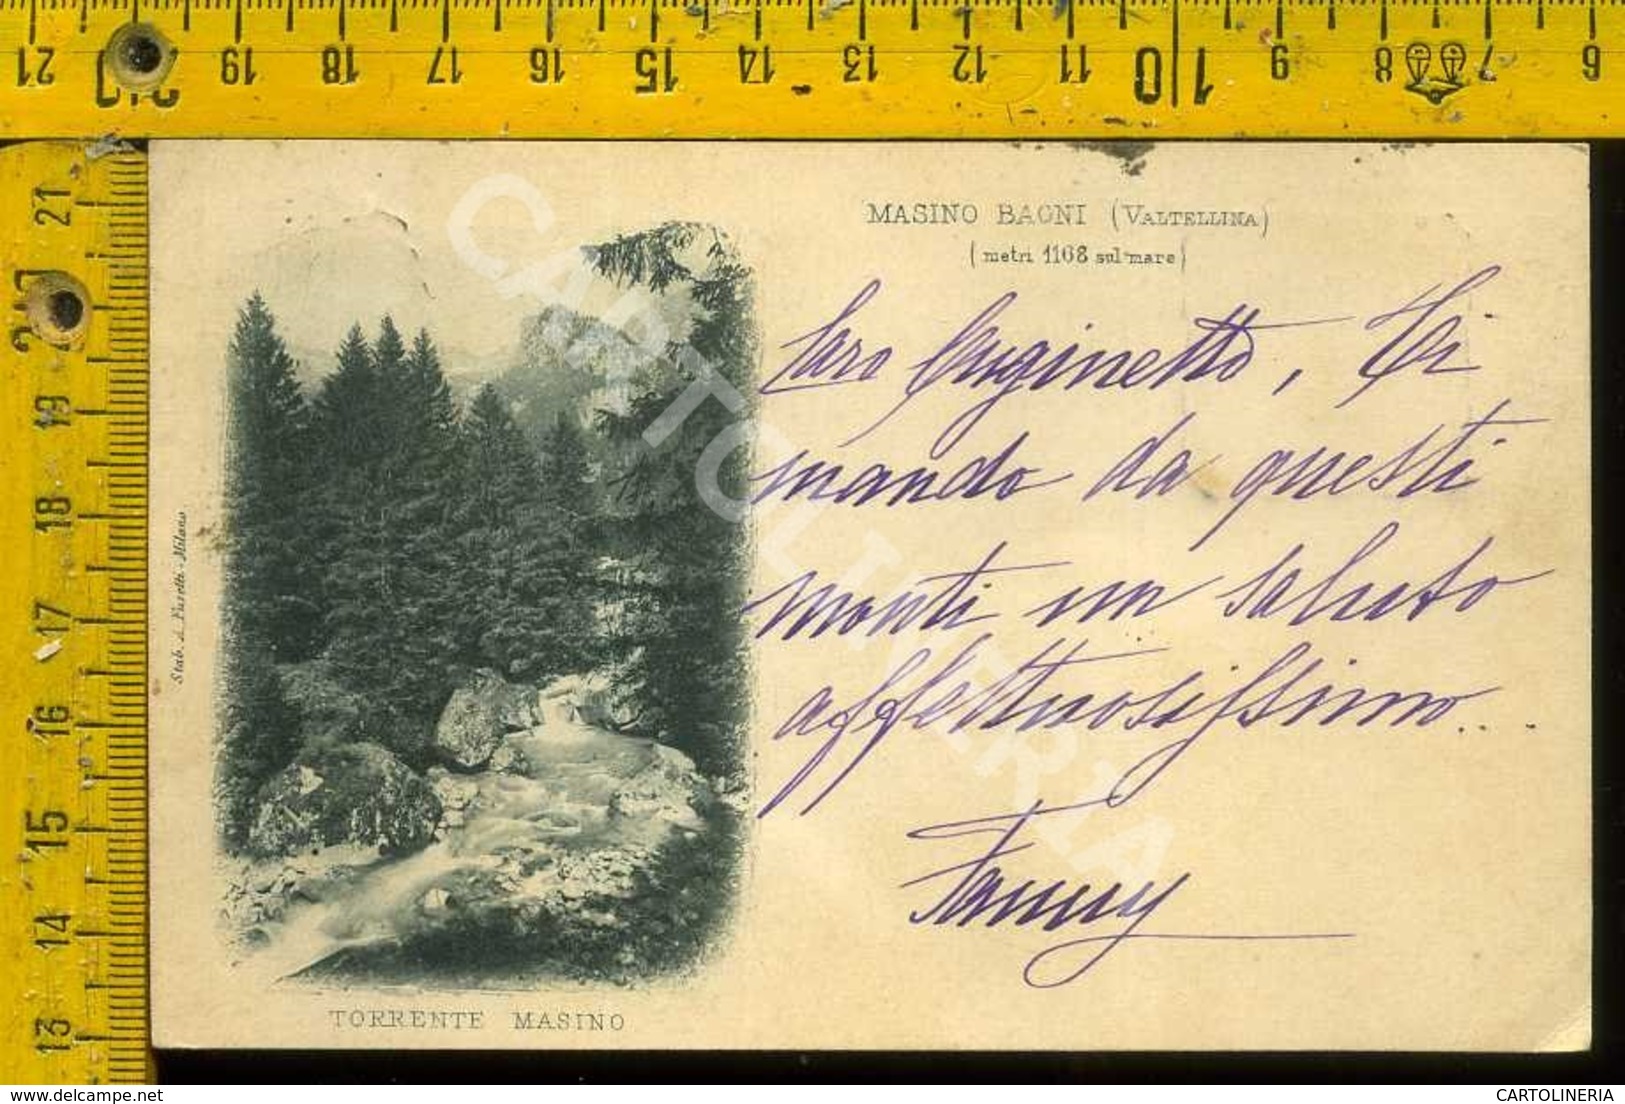 21 20 19 18 17 16 15 14 13 12 11 10 9 8 7 6
21
20
19
18
17
16
15
14
13
MASINO BAGNI (VALTELLINA)
(metri 1168 sul mare)
Caro Cuginetto, Ti
mando da questi
monti un saluto
affettuosissimo...
Fanny
Stab. A. Fusetti - Milano
TORRENTE MASINO
CARTOLINERIA
CARTOLINERIA